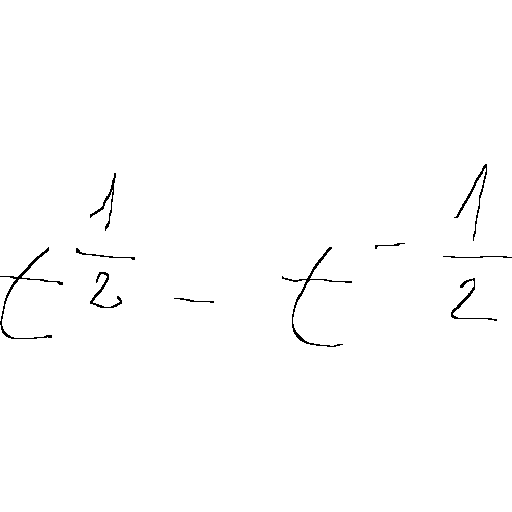 t^{\frac{1}{2}} - t^{-\frac{1}{2}}